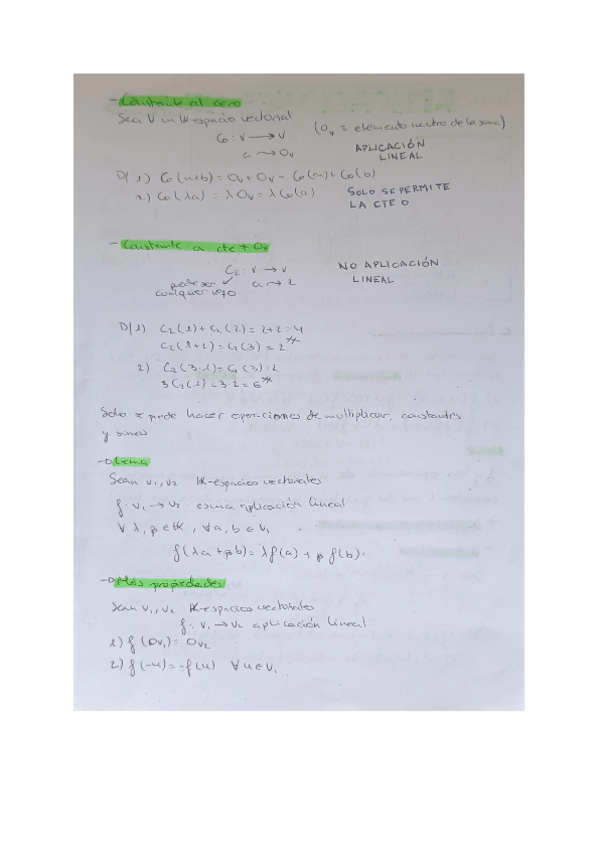 - Constante al cero
Sea V un K-espacio vectorial
C₀ : V → V (0ᵥ ≡ elemento neutro de la suma)
a → 0ᵥ
APLICACIÓN
LINEAL
D/ 1) C₀(a+b) = 0ᵥ + 0ᵥ = C₀(a) + C₀(b)
2) C₀(λa) = λ0ᵥ = λC₀(a)
SOLO SE PERMITE
LA CTE 0
- Constante a cte ≠ 0ᵥ
C₂ : V → V
a → 2
puede ser
cualquier
NO APLICACIÓN
LINEAL
D/ 1) C₂(1) + C₂(2) = 2+2 = 4
C₂(1+2) = C₂(3) = 2
2) C₂(3·1) = C₂(3) = 2
3C₂(1) = 3·2 = 6
Solo se puede hacer operaciones de multiplicar, constantes
y sumas
Lema
Sean V₁, V₂ K-espacios vectoriales
f: V₁ → V₂ es una aplicación lineal
∀ λ, β ∈ K, ∀ a, b ∈ V₁
f(λa + βb) = λf(a) + βf(b).
Más propiedades
Sean V₁, V₂ K-espacios vectoriales
f: V₁ → V₂ aplicación lineal
1) f(0ᵥ₁) = 0ᵥ₂
2) f(-u) = -f(u) ∀ u ∈ V₁